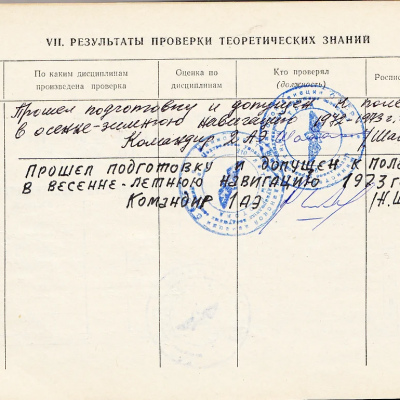 VII. РЕЗУЛЬТАТЫ ПРОВЕРКИ ТЕОРЕТИЧЕСКИХ ЗНАНИЙ
По каким дисциплинам произведена проверка
Оценка по дисциплинам
Кто проверял (должность)
Роспис
Прошел подготовку и допущен к поле
в осенне-зимнюю навигацию 1972-1973 г.
Командир 2 АЭ
Прошел подготовку и допущен к пол
в весенне-летнюю навигацию 1973 г
Командир 1 АЭ (Н.Ш